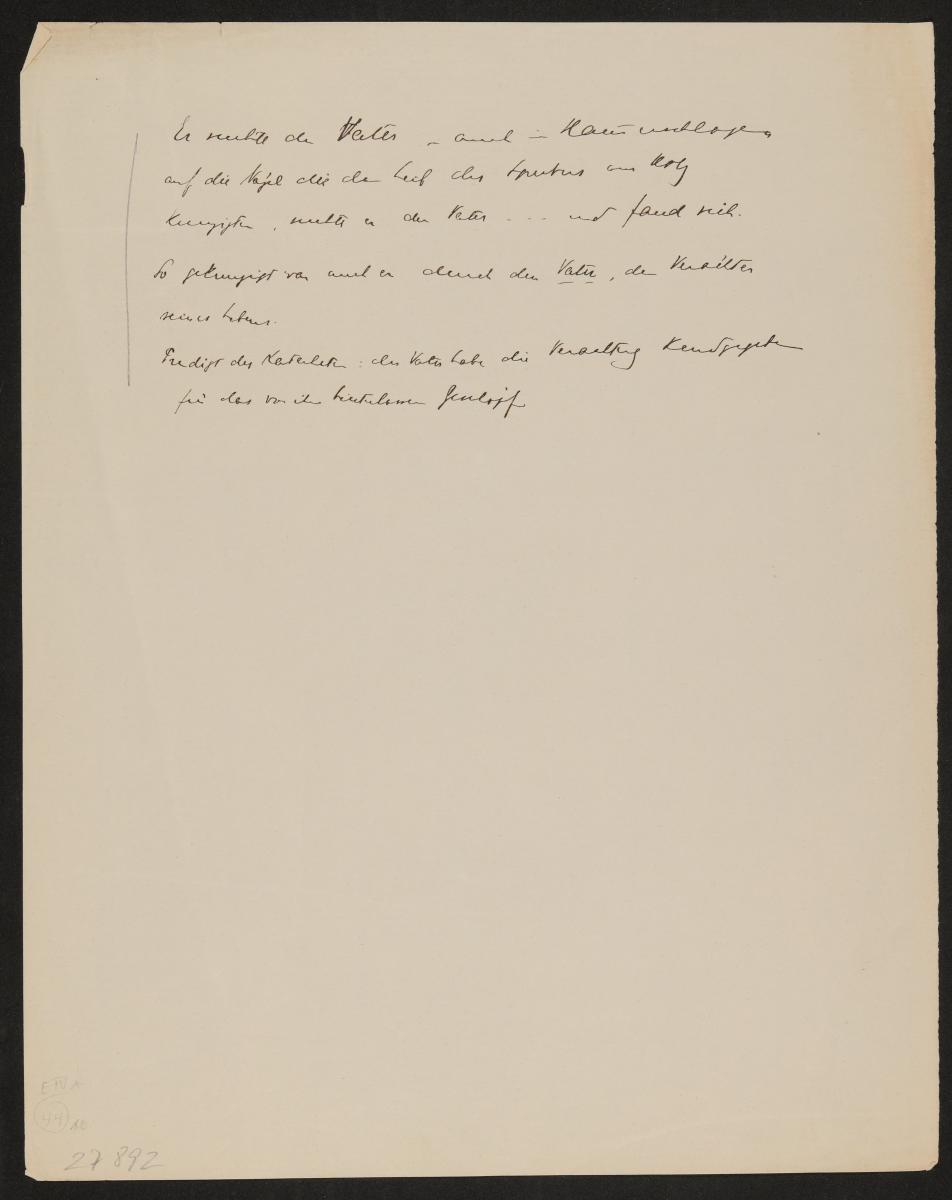 Er suchte den Vater – auch im Hammerschlagen
auf die Nägel die den Leib des ans Holz
kreuzigten, suchte er den Vater - - - und fand sich.
So gekreuzigt war auch er durch den Vater, den Verwalter
seines Lebens.
Predigt des Katecheten: der Vater habe die Verwaltung kundgegeben
für das von ihm hinterlassene Geschöpf
E IV A
44 10
27892